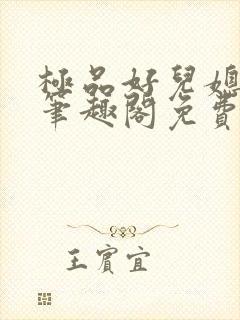 極品好兒媳
筆趣閣免費
王賓宜